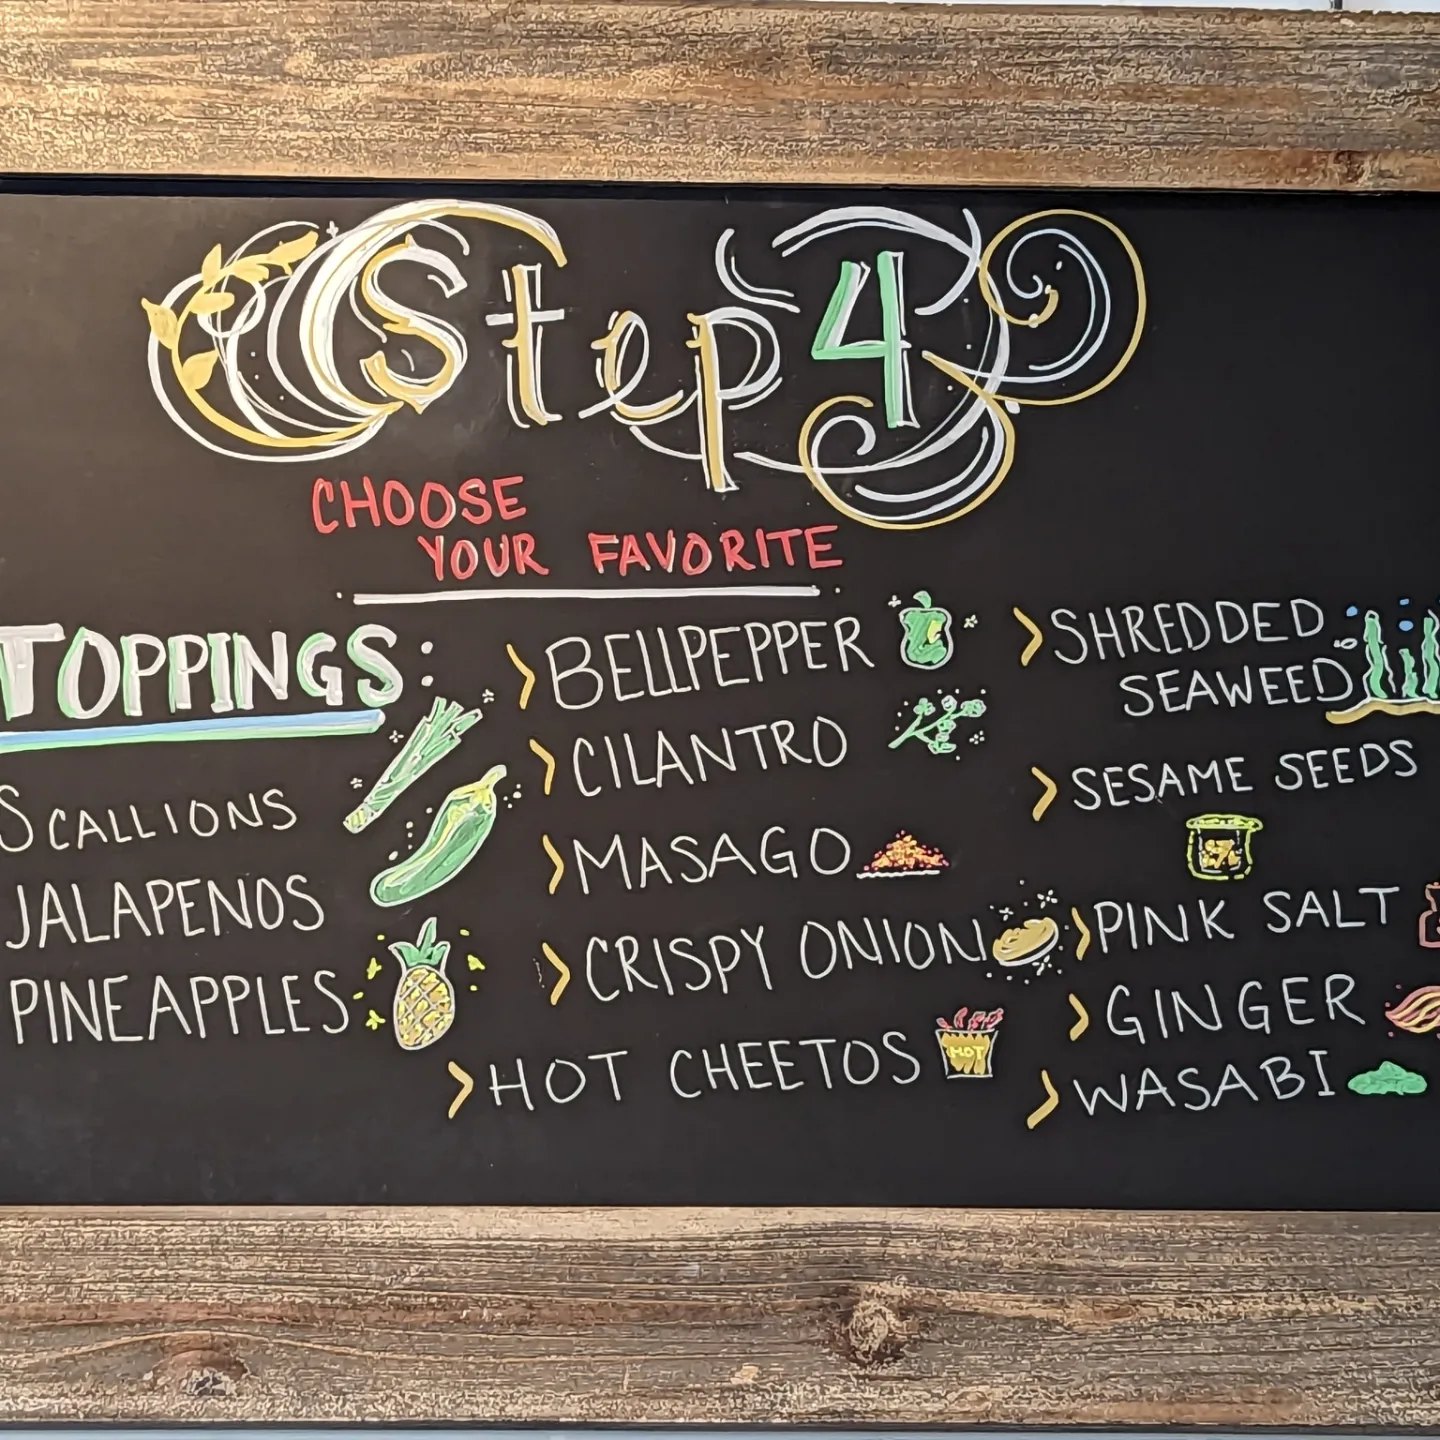 Step 4
CHOOSE
YOUR FAVORITE
TOPPINGS:
SCALLIONS
JALAPENOS
PINEAPPLES
BELLPEPPER
CILANTRO
MASAGO
CRISPY ONION
HOT CHEETOS
HOT
SHREDDED
SEAWEED
SESAME SEEDS
PINK SALT
GINGER
WASABI